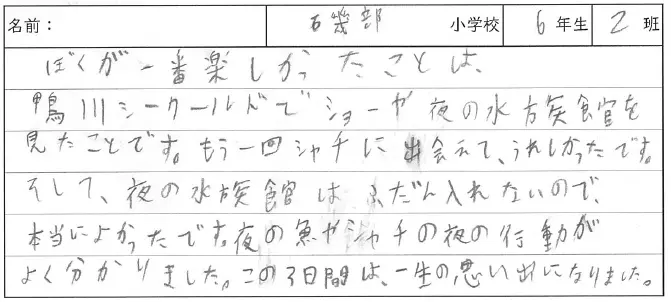 名前： 石幾部 小学校 6年生 2班
ぼくが一番楽しかったことは、
鴨川シーワールドでショーや夜の水族館を
見たことです。もう一回シャチに出会えて、うれしかったです。
そして、夜の水族館はふだん入れないので、
本当によかったです。夜の魚やシャチの夜の行動が
よく分かりました。この3日間は、一生の思い出になりました。